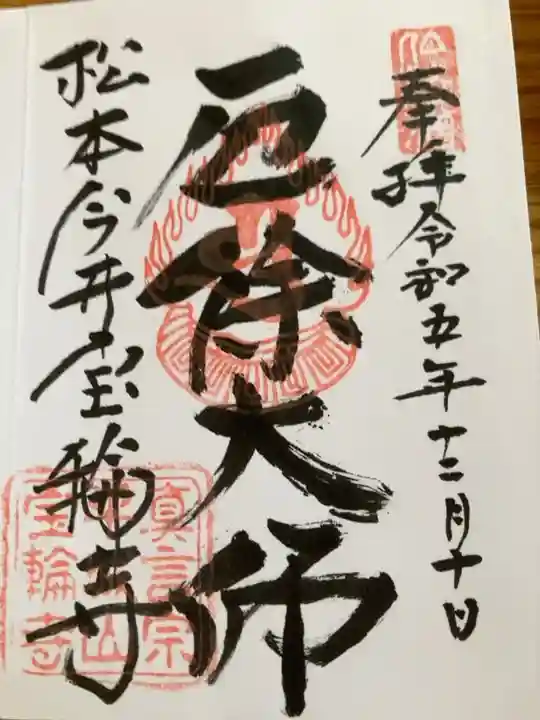 奉拝令和五年十二月十日
厄除大師
松本今井宝輪寺
真言宗
山
宝輪寺